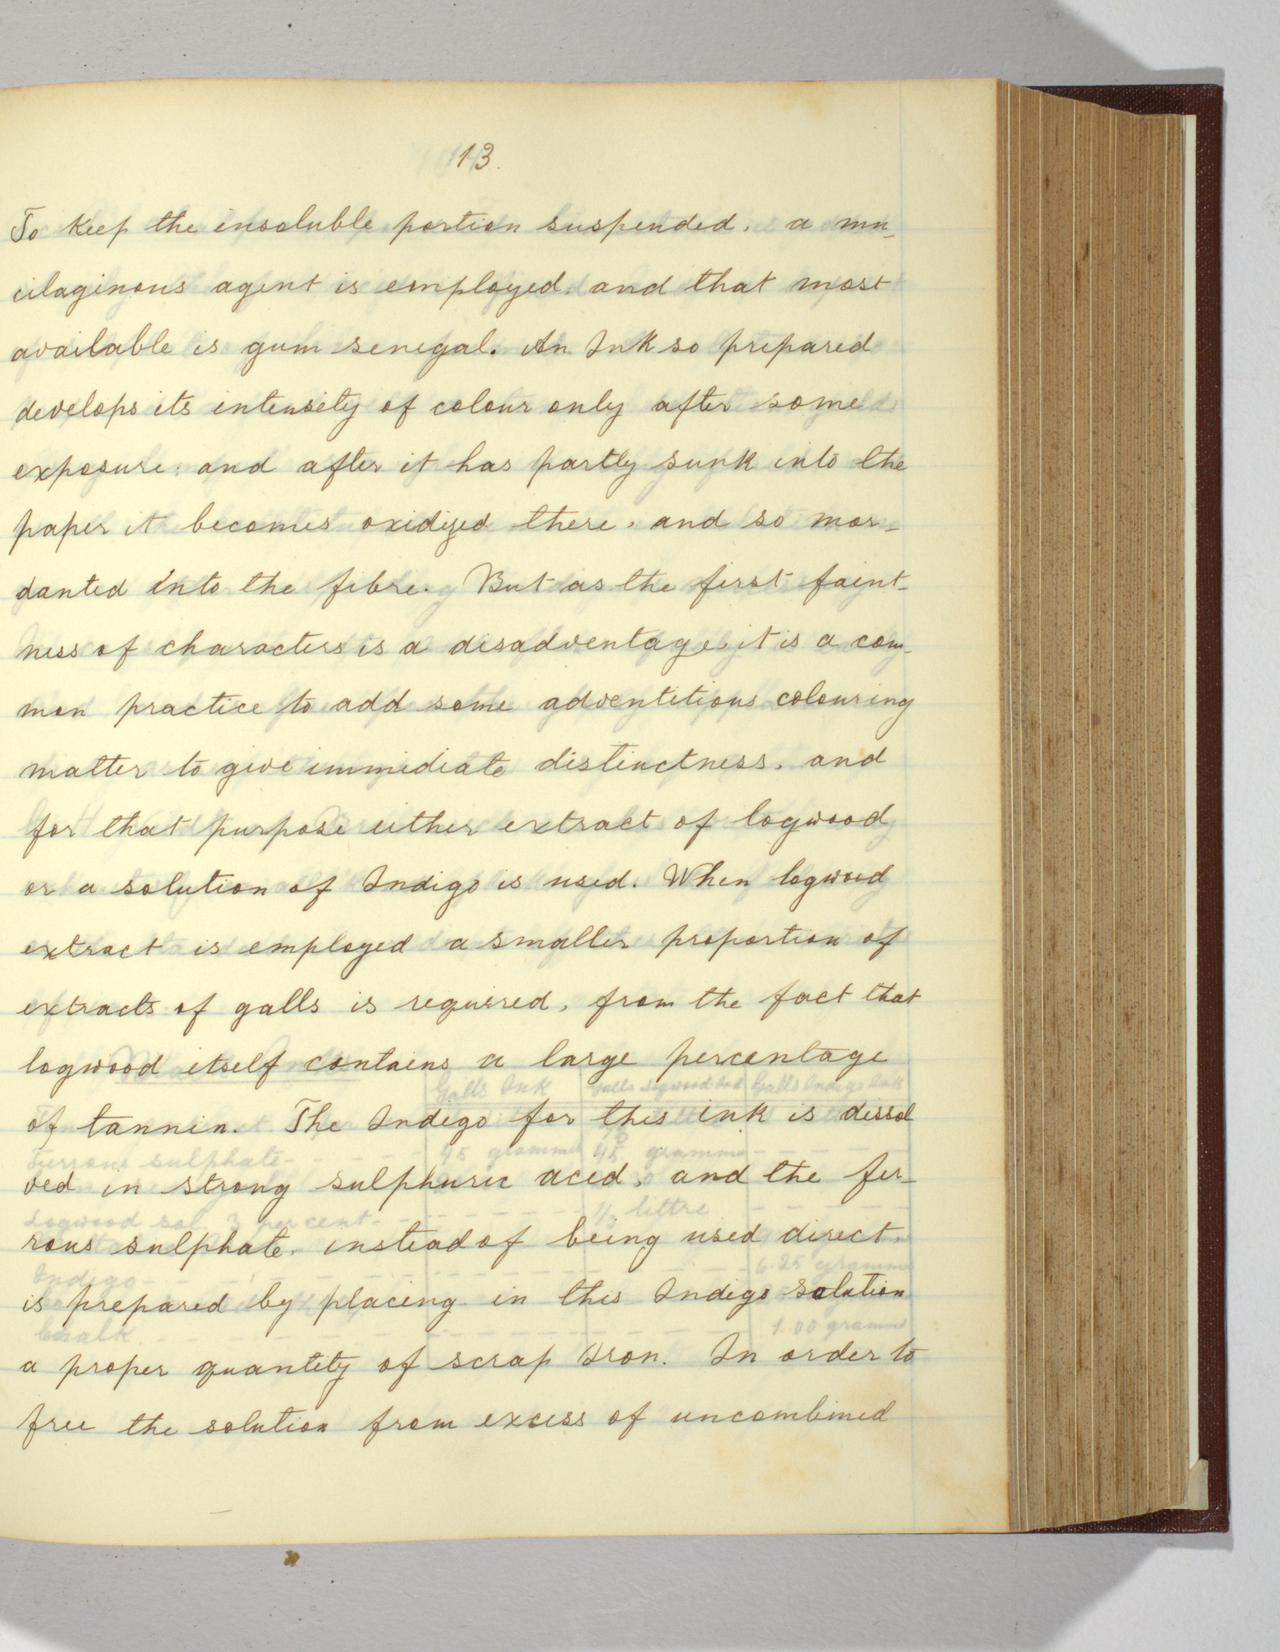 13.
To Keep the insoluble portion suspended, a mu-
cilaginous agent is employed, and that most
available is gum senegal. An Ink so prepared
develops its intensety of colour only after some
exposure; and after it has partly sunk into the
paper it becomes oxidized there, and so mor-
danted into the fibre. But as the first faint-
ness of characters is a disadventage, it is a com-
mon practice to add some adventitious colouring
matter to give immediate distinctness, and
for that purpose either extract of logwood
or a solution of Indigo is used. When logwood
extract is employed a smaller proportion of
extracts of galls is required, from the fact that
logwood itself contains a large percentage
of tannin. The Indigo for this ink is dissol
ved in strong sulphuric acid, and the fer-
rous sulphate, instead of being used direct,
is prepared by placing in this Indigo solution
a proper quantity of scrap Iron. In order to
free the solution from excess of uncombined
Galls Ink Galls Logwood Ink Galls Indigo Ink
Ferrous sulphate 45 gramms 45 gramms
Logwood sol. 3 per cent littre
Indigo 6.25 gramms
Chalk 1.00 gramms